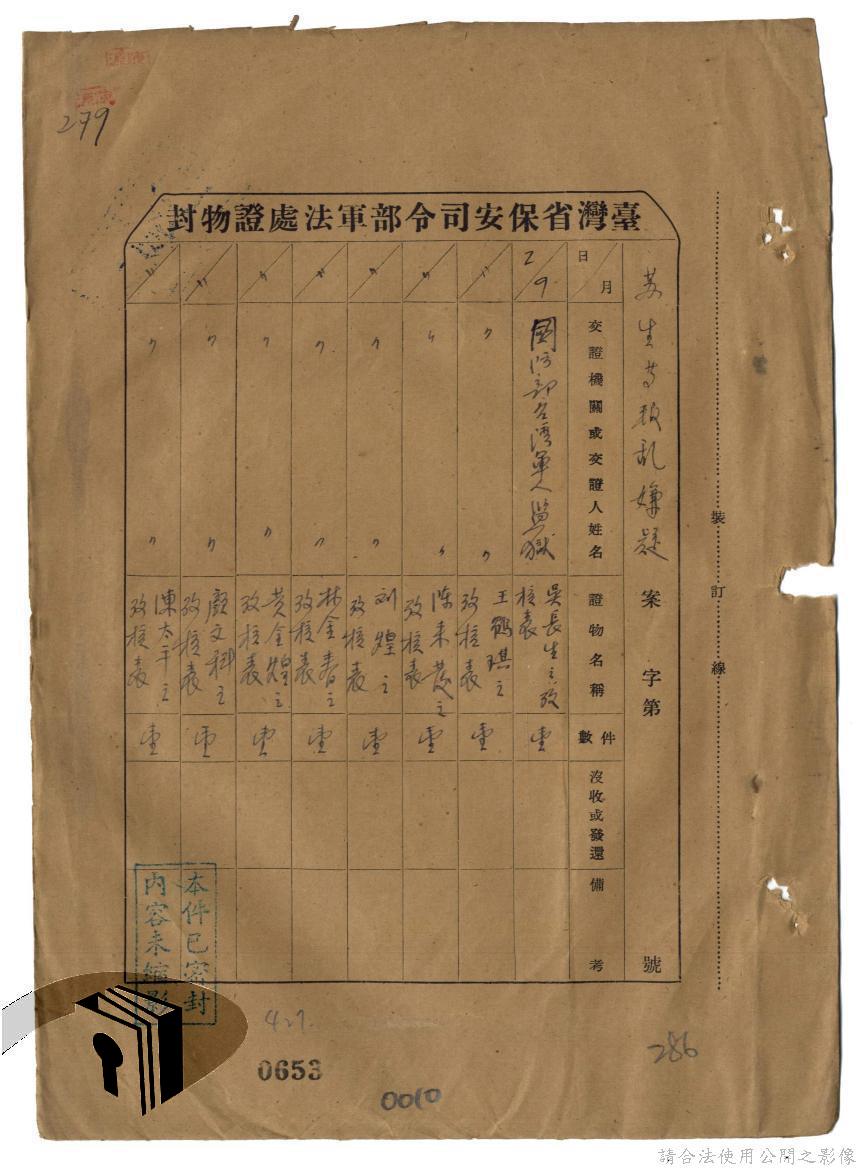 279
臺灣省保安司令部軍法處證物封
苏生等叛亂嫌疑 案 字第 號
月 日
交證機關或交證人姓名
證物名稱
件數
沒收或發還
備 考
2/9
國防部台灣軍人監獄
吳長生之攷核表
壹
〃 〃
王鶴琪之攷核表
壹
〃 〃
陈来發之攷核表
壹
〃 〃
刘煌之攷核表
壹
〃 〃
林金春之攷核表
壹
〃 〃
黄金煌之攷核表
壹
〃 〃
顏文科之攷核表
壹
〃 〃
陳太平之攷核表
壹
裝 訂 線
本件已密封
內容未縮影
427.
0653
0010
286
請合法使用公開之影像